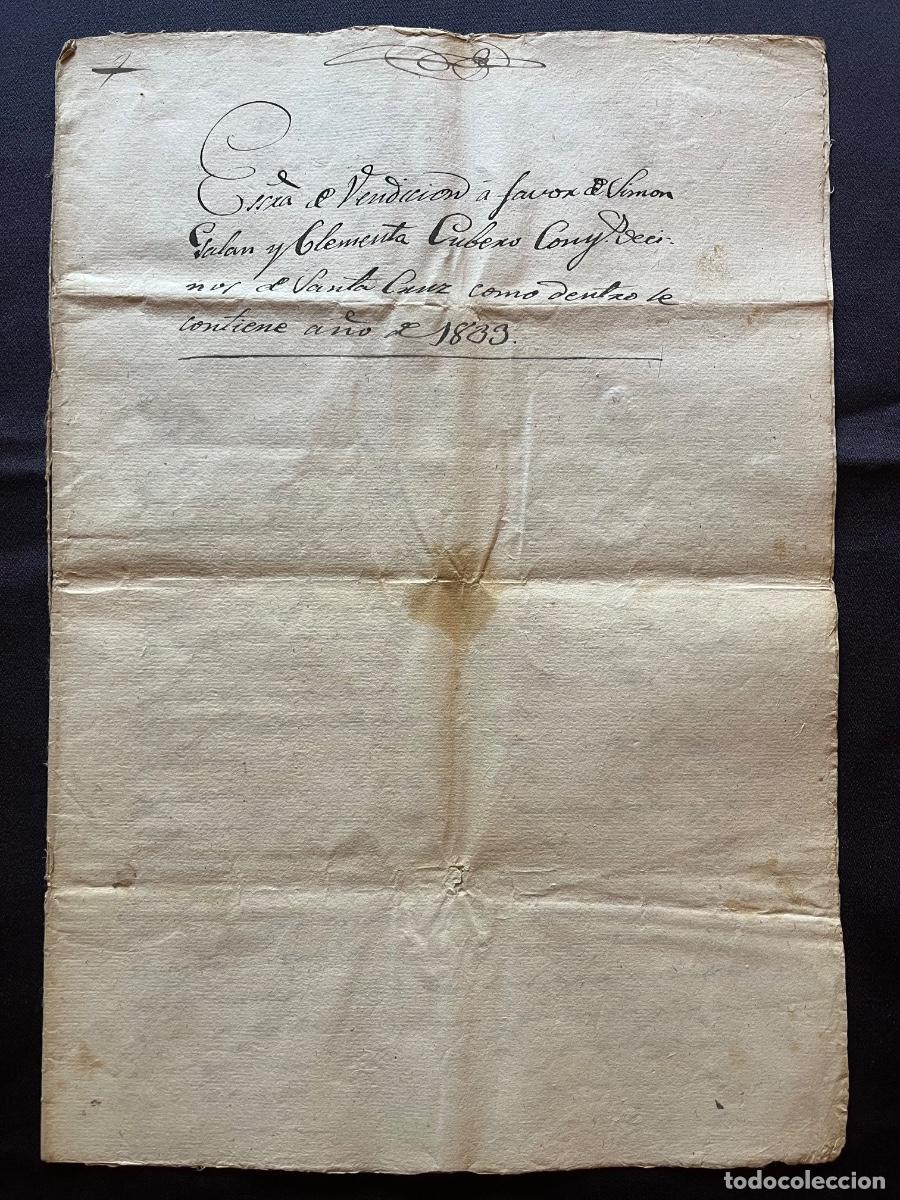 Escra de Vendicion á favor de Simon
Galan y Clementa Cubero Cony.s Veci-
nos de Santa Cruz como dentro se
contiene año de 1833.
todocoleccion